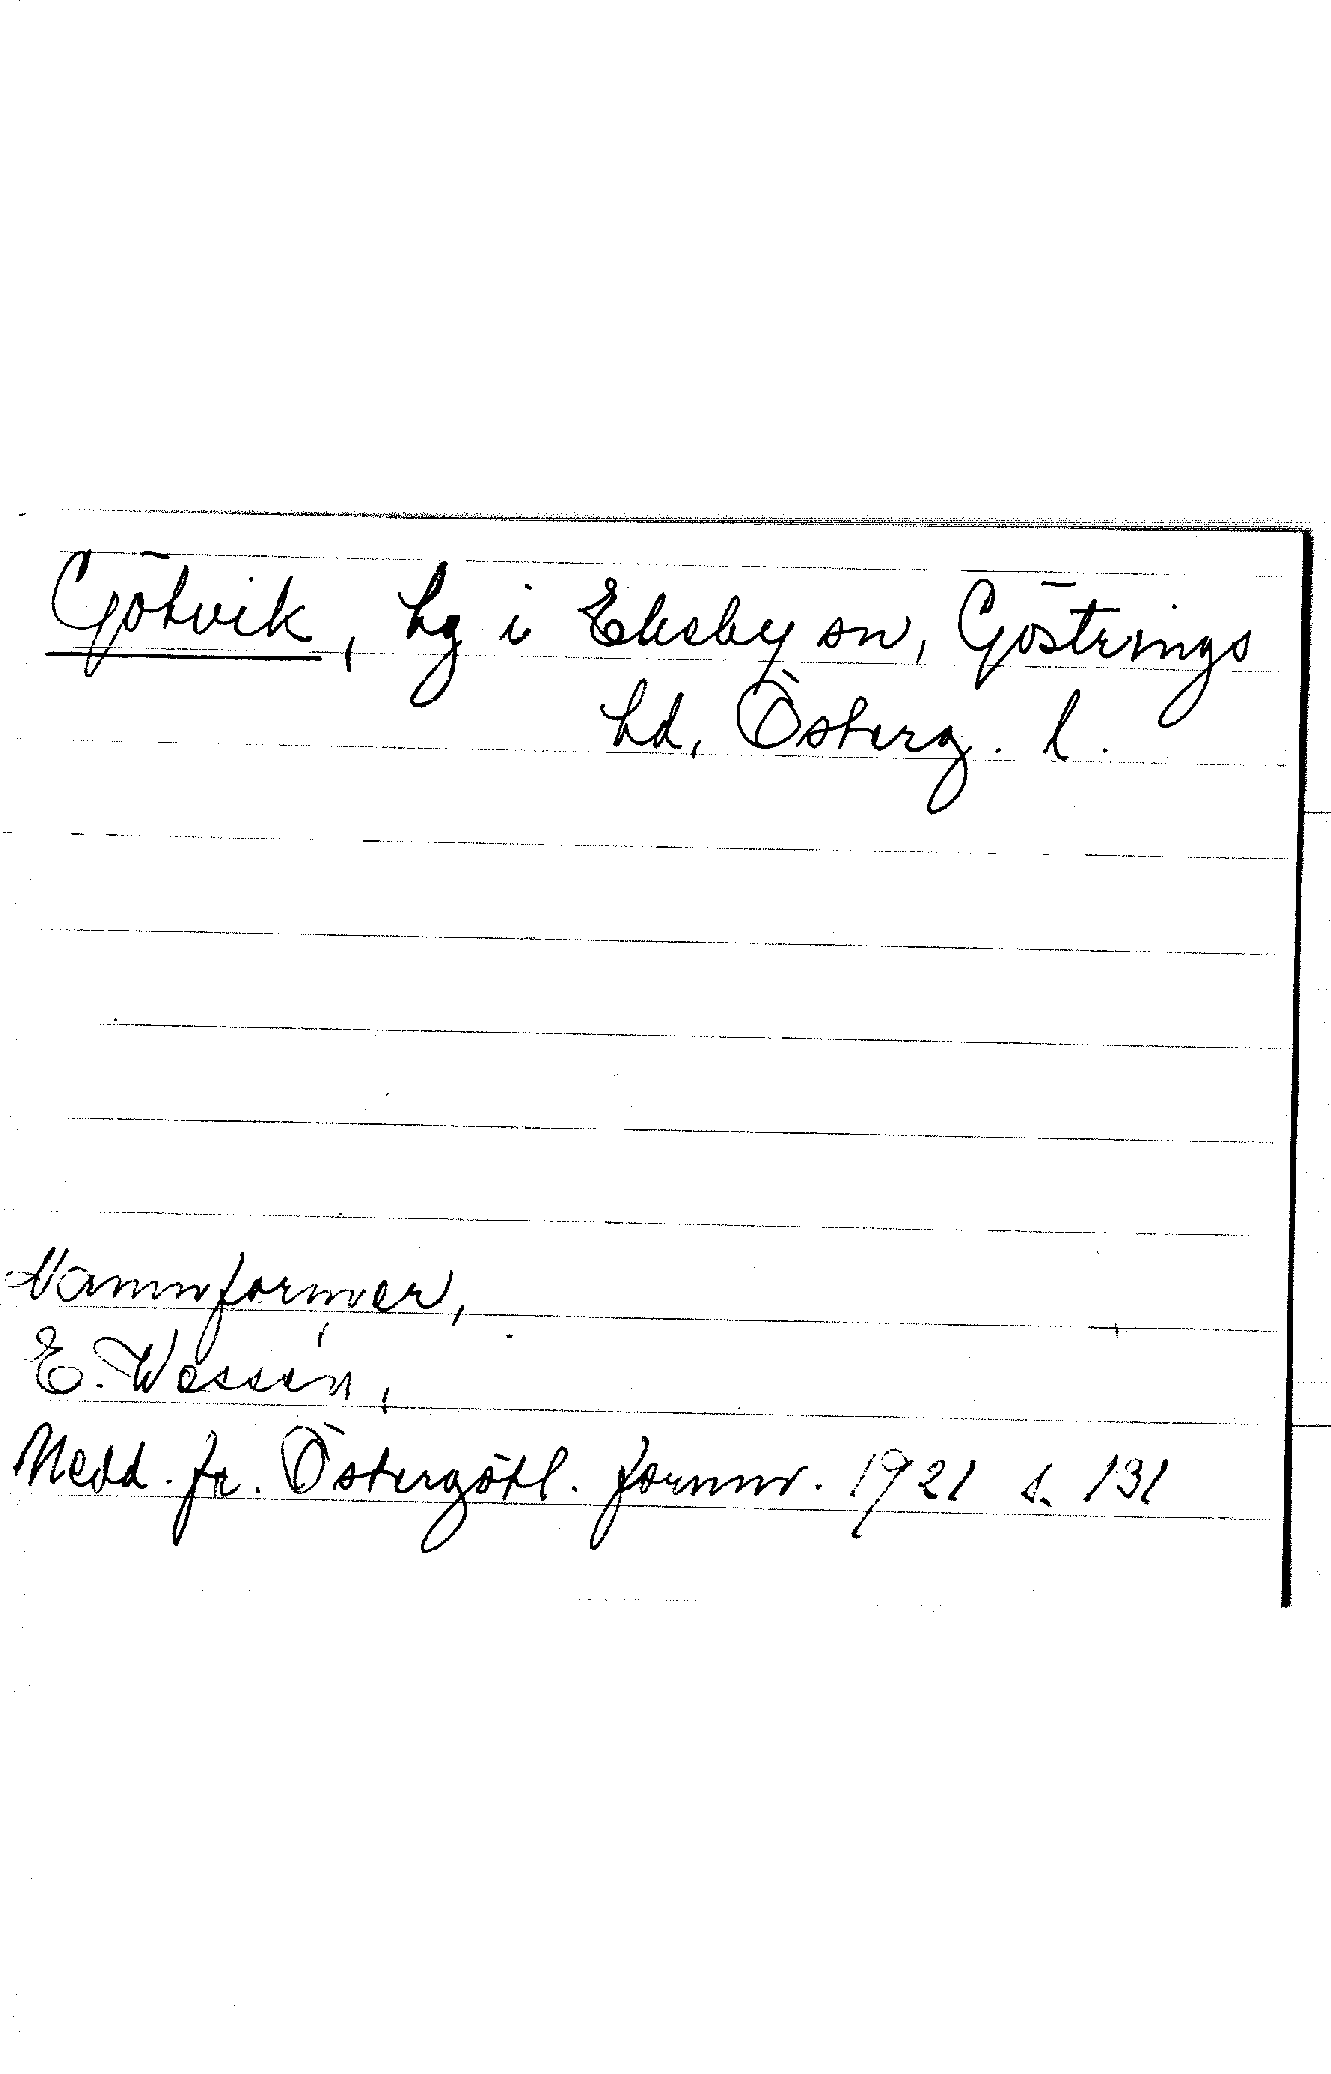 Götvik, hg i Ekeby sn, Göstrings
hd, Österg. l.
Namnformer,
E. Wessén,
Medd. fr. Östergötl. fornm. 1921 s. 131